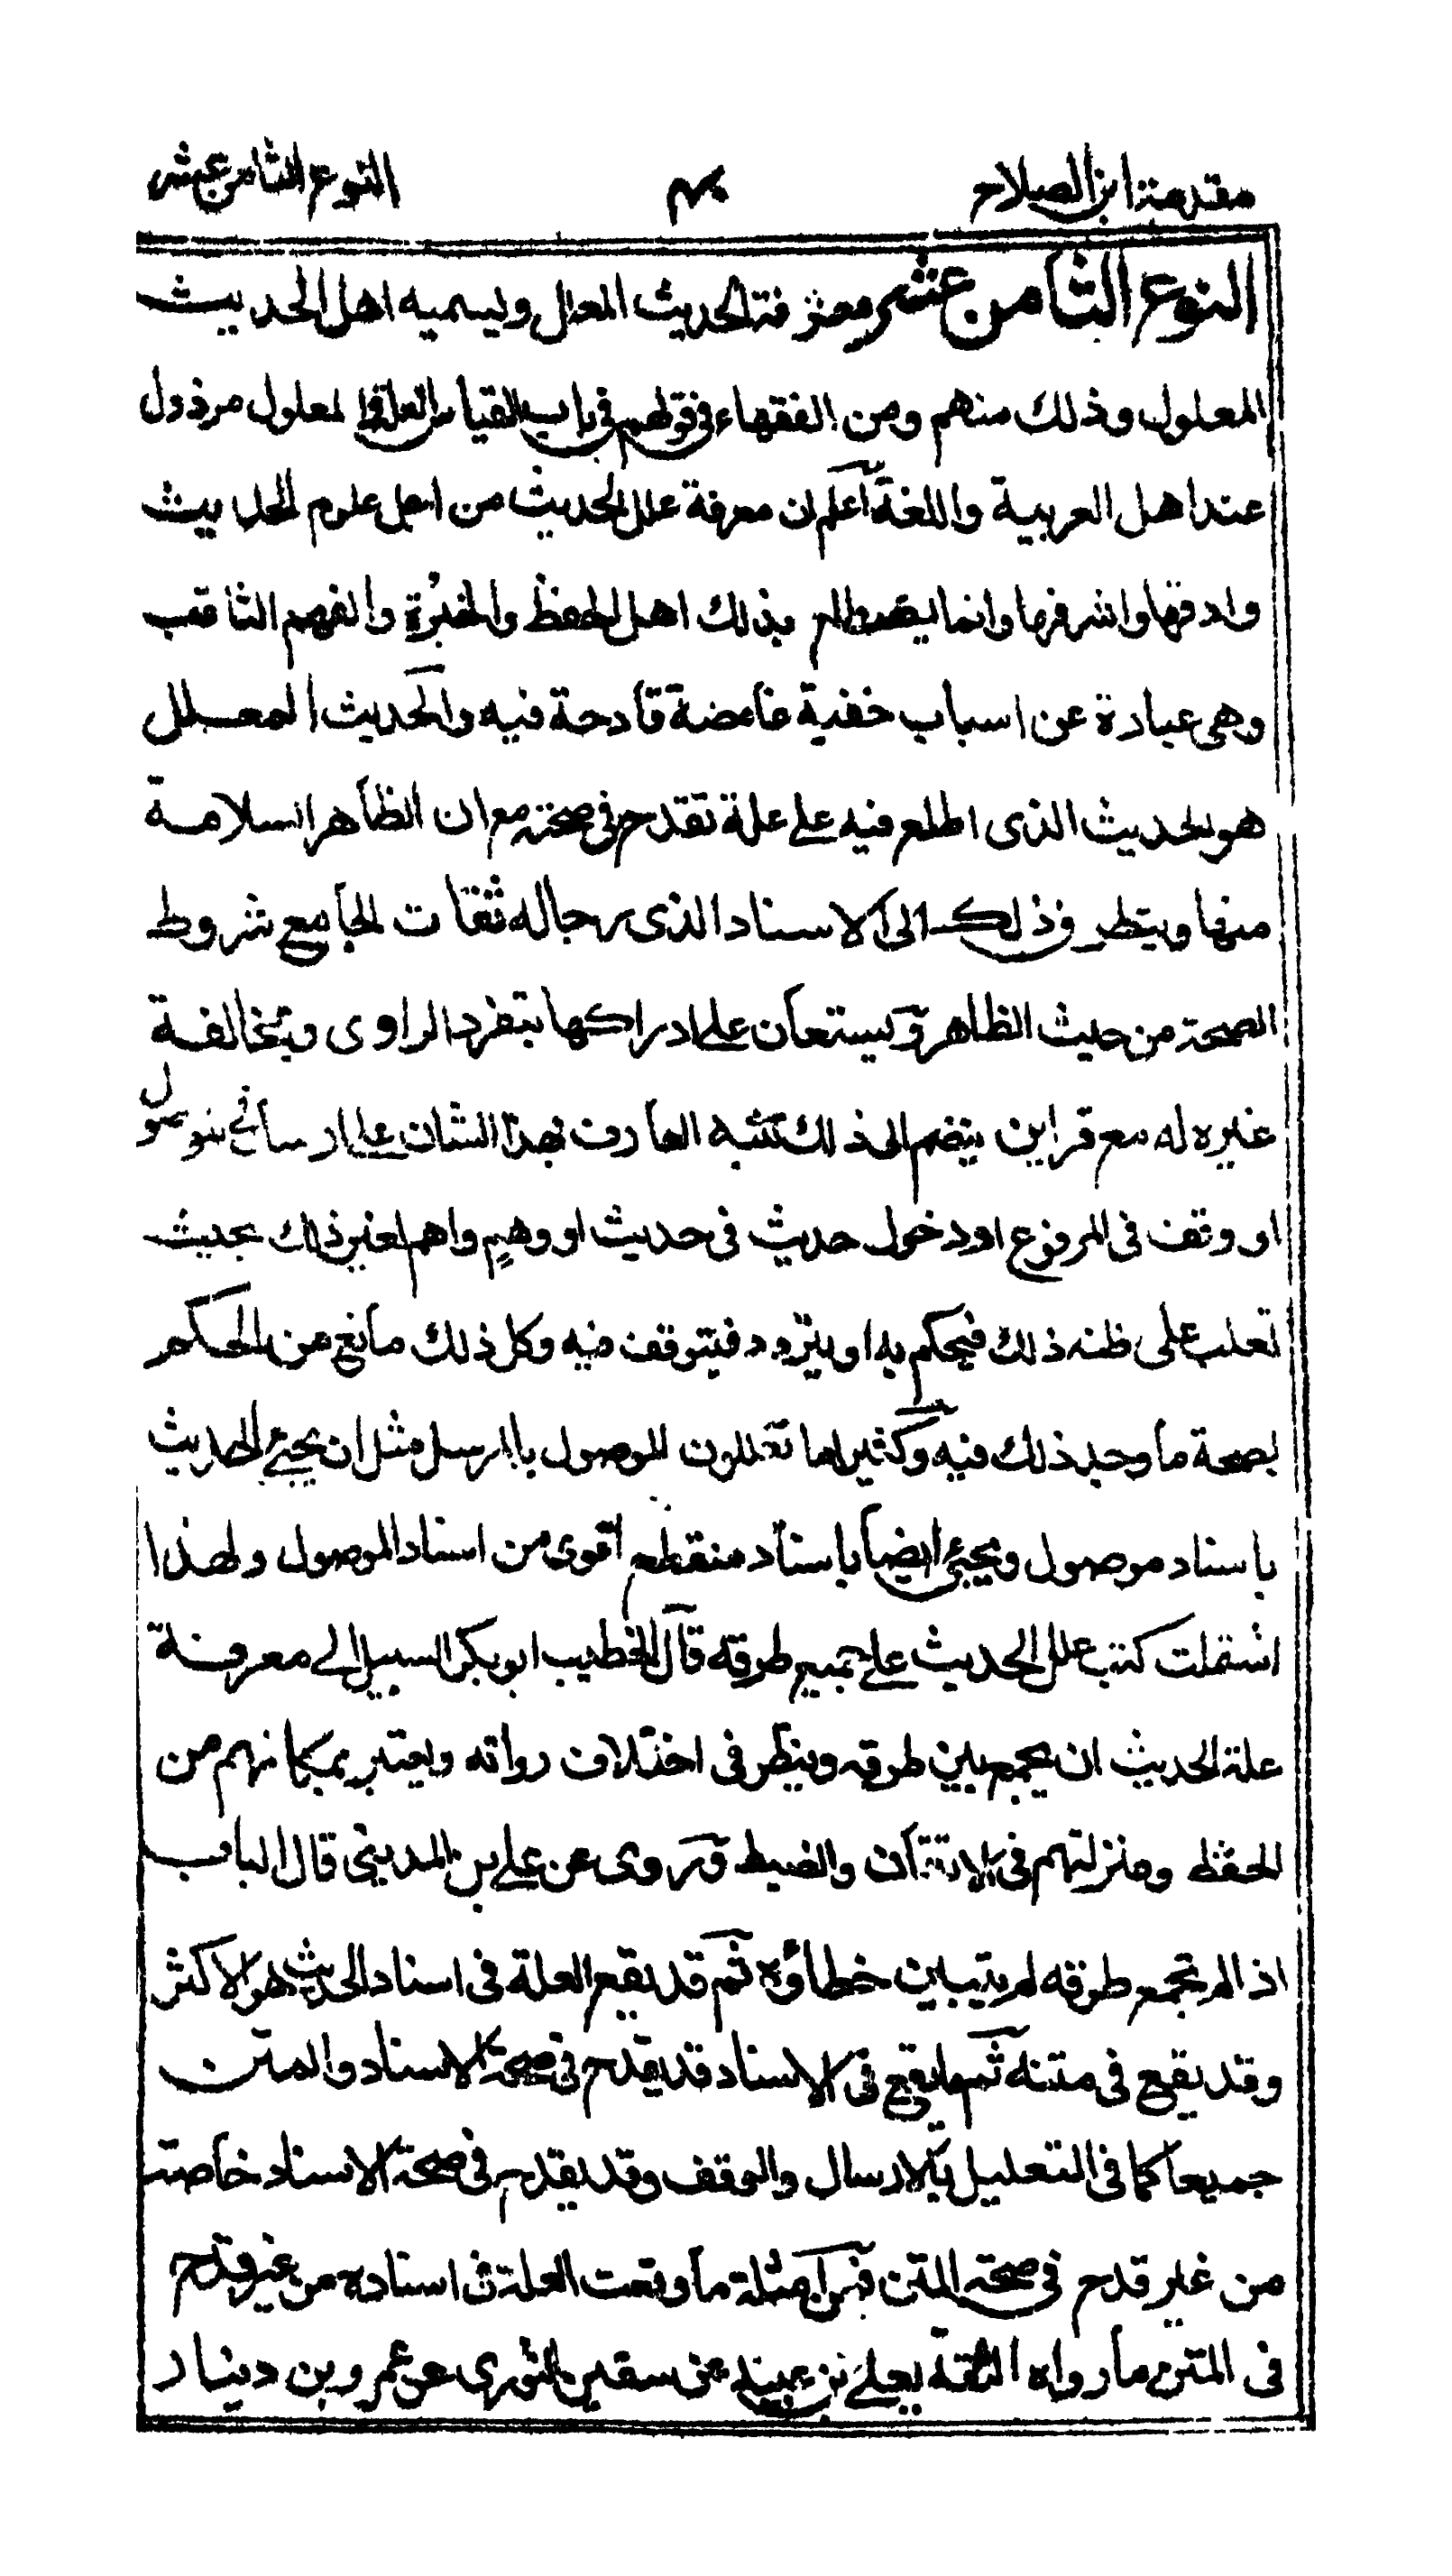 مقدمة ابن الصلاح ٤٣ النوع الثامن عشر
النوع الثامن عشر معرفة الحديث المعلل ويسميه اهل الحديث
المعلول وذلك منهم ومن الفقهاء في قولهم في باب القياس العلة والمعلول مرذول
عند اهل العربية واللغة اعلم ان معرفة علل الحديث من اجل علوم الحديث
وادقها واشرفها وانما يضطلع بذلك اهل الحفظ والخبرة والفهم الثاقب
وهي عبارة عن اسباب خفية غامضة قادحة فيه والحديث المعلل
هو الحديث الذى اطلع فيه على علة تقدح في صحته مع ان الظاهر السلامة
منها ويتطرق ذلك الى الاسناد الذى رجاله ثقات الجامع شروط
الصحة من حيث الظاهر ويستعان على ادراكها بتفرد الراوى وبمخالفة
غيره له مع قراين ينضم الى ذلك تنبه العارف بهذا الشان على ارسال في موصول
او وقف في المرفوع او دخول حديث في حديث او وهم واهم لغير ذلك بحيث
تغلب على ظنه ذلك فيحكم به او يتردد فيتوقف فيه وكل ذلك مانع من الحكم
بصحة ما وجد ذلك فيه وكثيرا ما تعللون الموصول بالمرسل مثل ان يجئ الحديث
باسناد موصول ويجئ ايضا باسناد منقطع اقوى من اسناد الموصول ولهذا
اشتملت كتب علل الحديث على جميع طرقه قال الخطيب ابو بكر السبيل الى معرفة
علة الحديث ان يجمع بين طرقه وينظر في اختلاف رواته ويعتبر بمكانهم من
الحفظ ومنزلتهم في الاتقان والضبط وروى عن على بن المدينى قال الباب
اذا لم تجمع طرقه لم يتبين خطاؤه ثم قد يقع العلة في اسناد الحديث هو الاكثر
وقد يقع في متنه ثم ما يقع في الاسناد قد يقدح في صحة الاسناد والمتن
جميعا كما في التعليل بالارسال والوقف وقد يقدح في صحة الاسناد خاصة
من غير قدح في صحة المتن فمن امثلة ما وقعت العلة في اسناده من غير قدح
في المتن ما رواه الثقة يعلى بن عبيد عن سفين الثورى عن عمرو بن دينار